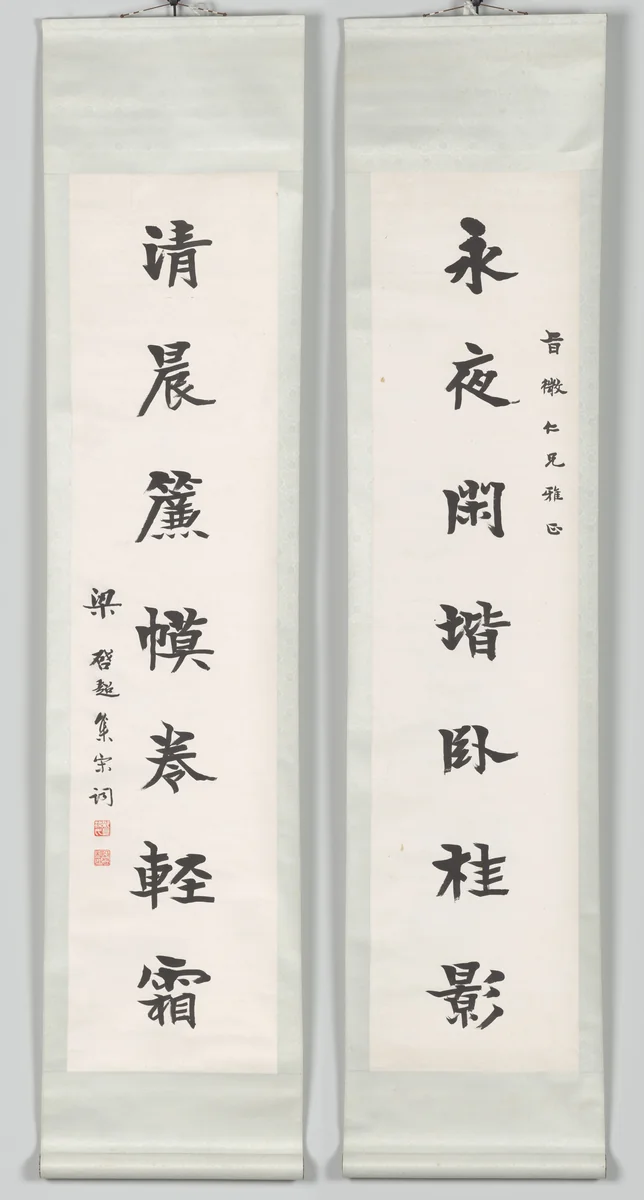 旨微仁兄雅正
永夜閑堦臥桂影
清晨簾幙卷輕霜
梁啓超集宋詞